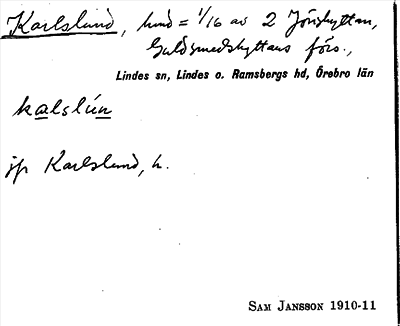 Karlslund, hmd = 1/16 av 2 Jönshyttan,
Guldsmedshyttans förs.,
Lindes sn, Lindes o. Ramsbergs hd, Örebro län
kalslún
jfr Karlslund, h.
SAM JANSSON 1910-11